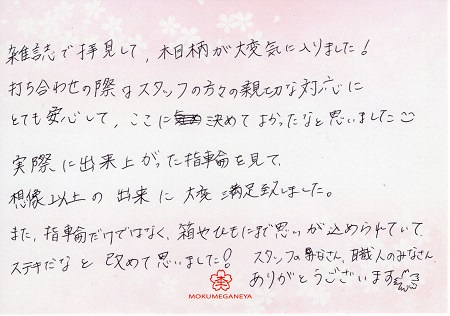 雑誌で拝見して、木目柄が大変気に入りました！
打ち合わせの際はスタッフの方々の親切な対応に
とても安心して、ここに決めてよかったなと思いました
実際に出来上がった指車輪を見て、
想像以上の出来に大変満足致しました。
また、指車輪だけではなく、箱やひもにまで思いが込められていて
ステキだなと改めて思いました！ スタッフの皆なさん、職人のみなさん、
ありがとうございます
MOKUMEGANEYA